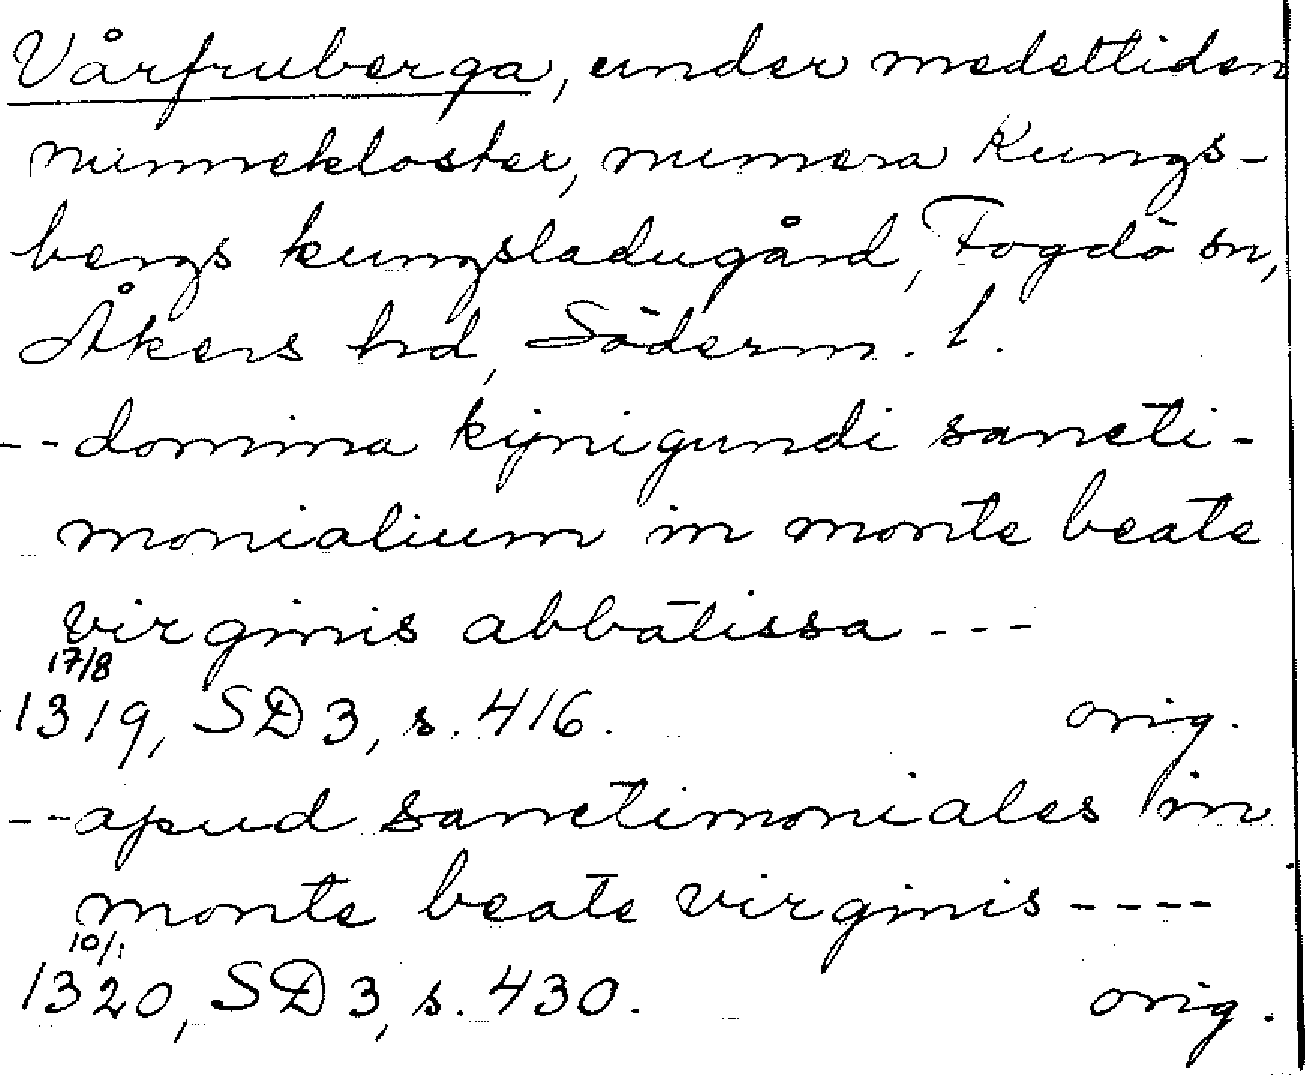 Vårfruberga, under medeltiden
nunnekloster, numera Kungs-
bergs kungsladugård, Fogdö sn,
Åkers hd, Söderm. l.
--domina kijnigundi sancti-
monialium in monte beate
virginis abbatissa ---
17/8
1319, SD 3, s. 416. orig.
--apud sanctimoniales in
monte beate virginis ----
10/1
1320, SD 3, s. 430. orig.